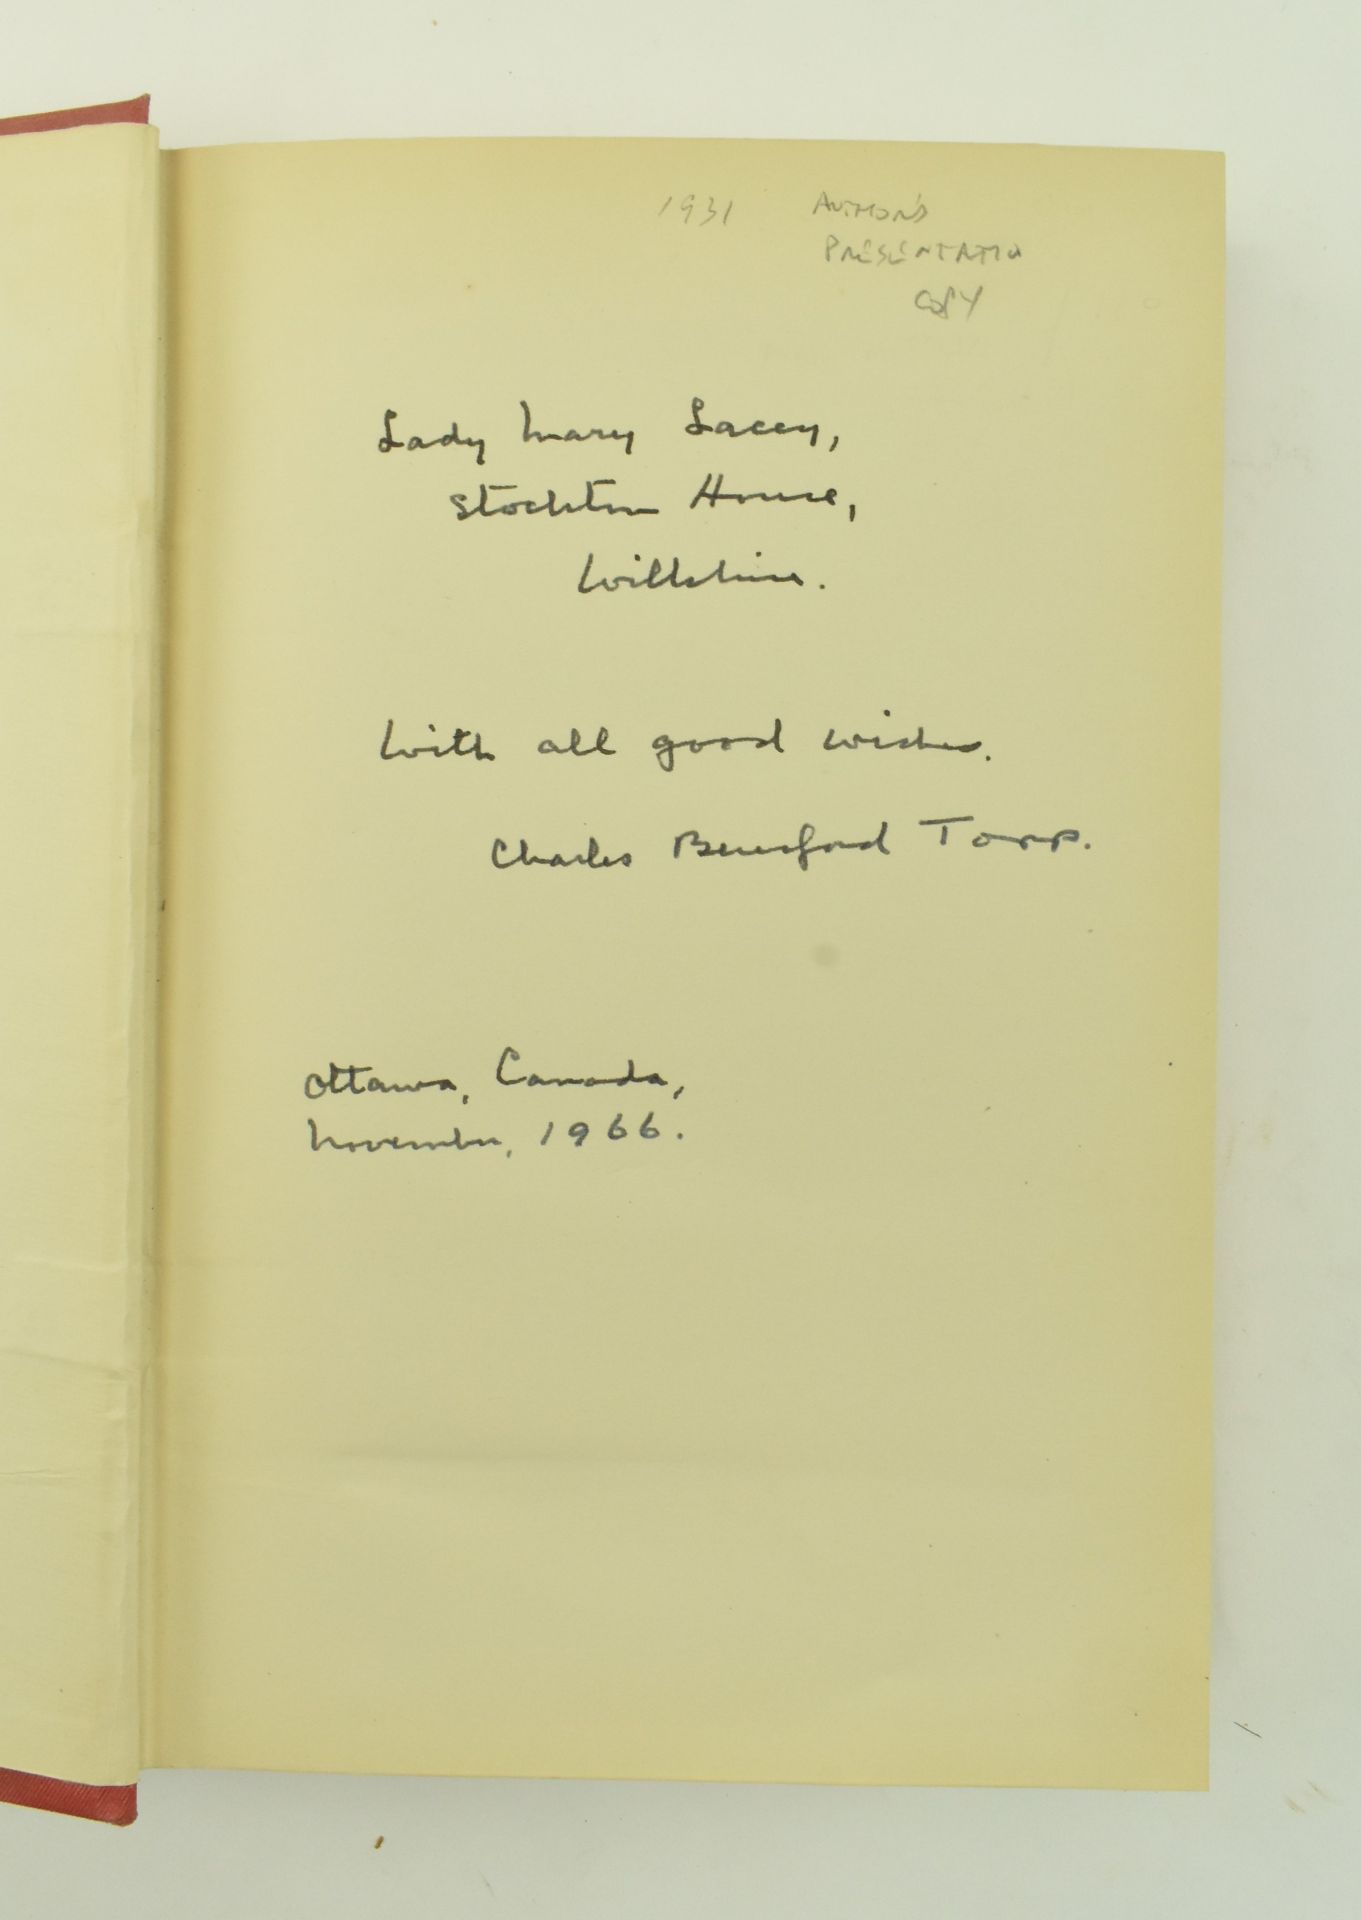 1931 AUTHOR'S
PRESENTATION
COPY
Lady Mary Lacey,
Stockton House,
Wiltshire.
With all good wishes.
Charles Beresford Topp.
Ottawa, Canada,
November, 1966.